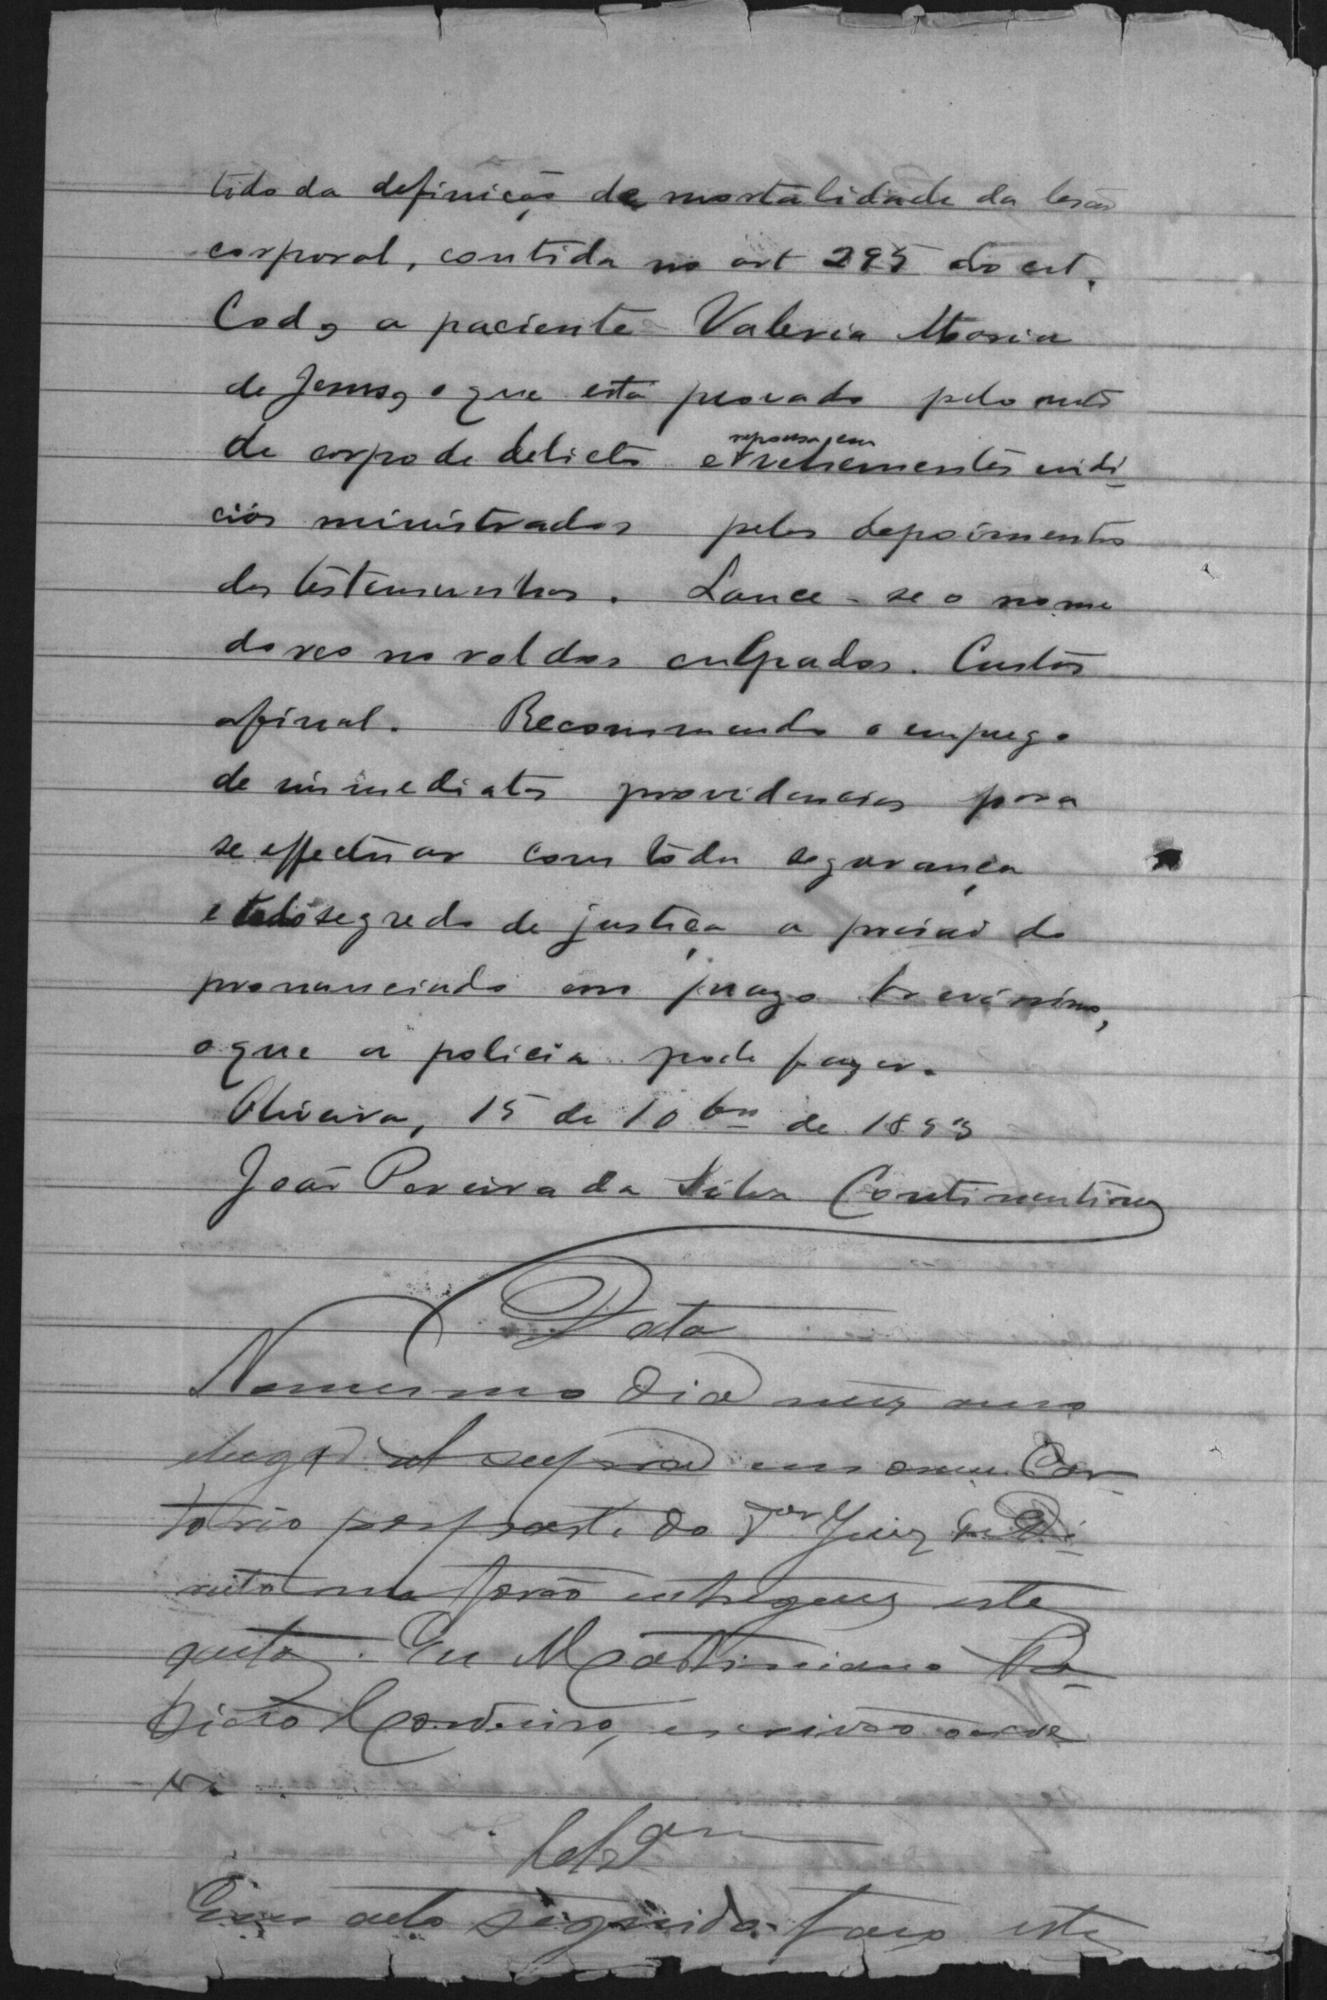 tido da definição de mortalidade da lesão
corporal, contida no art 295 do cit.
Cod, a paciente Valeria Maria
de Jesus, o que está provado pelo auto
de corpo de delicto e repousa em vehementes indi-
cios ministrados pelos depoimentos
das testemunhas. Lance-se o nome
do reo no rol dos culpados. Custas
afinal. Recommendo o emprego
de immediatas providencias para
se effectuar com toda segurança
e todo segredo de justiça a prisão do
pronunciado em prazo brevissimo,
o que a policia pode fazer.
Oliveira, 15 de 10bro de 1893
João Pereira da Silva Continentino
Data
No mesmo dia mez anno
e lugar supra em meu Car-
torio por parte do Dor Juiz de Di-
reito me forão entregues estes
autos. Eu Martiniano
Cordeiro, escrivão o escre
vi.
Clsam
Em acto seguido faço estes